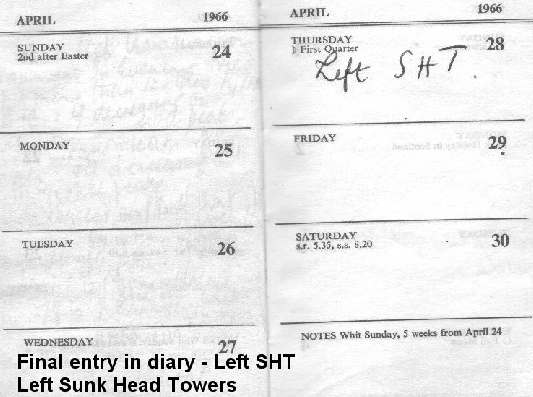 APRIL 1966
SUNDAY 24
2nd after Easter
MONDAY 25
TUESDAY 26
WEDNESDAY 27
APRIL 1966
THURSDAY 28
First Quarter
Left SHT.
FRIDAY 29
SATURDAY 30
s.r. 5.35, s.s. 8.20
NOTES Whit Sunday, 5 weeks from April 24
Final entry in diary - Left SHT
Left Sunk Head Towers